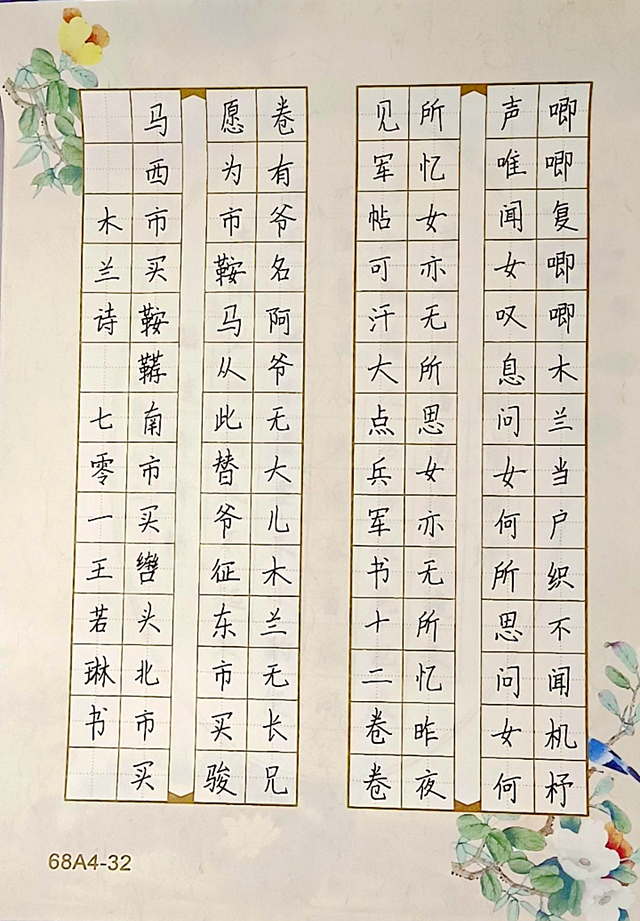 唧唧复唧唧木兰当户织不闻机杼
声唯闻女叹息问女何所思问女何
所忆女亦无所思女亦无所忆昨夜
见军帖可汗大点兵军书十二卷卷
卷有爷名阿爷无大儿木兰无长兄
愿为市鞍马从此替爷征东市买骏
马西市买鞍鞯南市买辔头北市买
木兰诗 七零一王若琳书
68A4-32